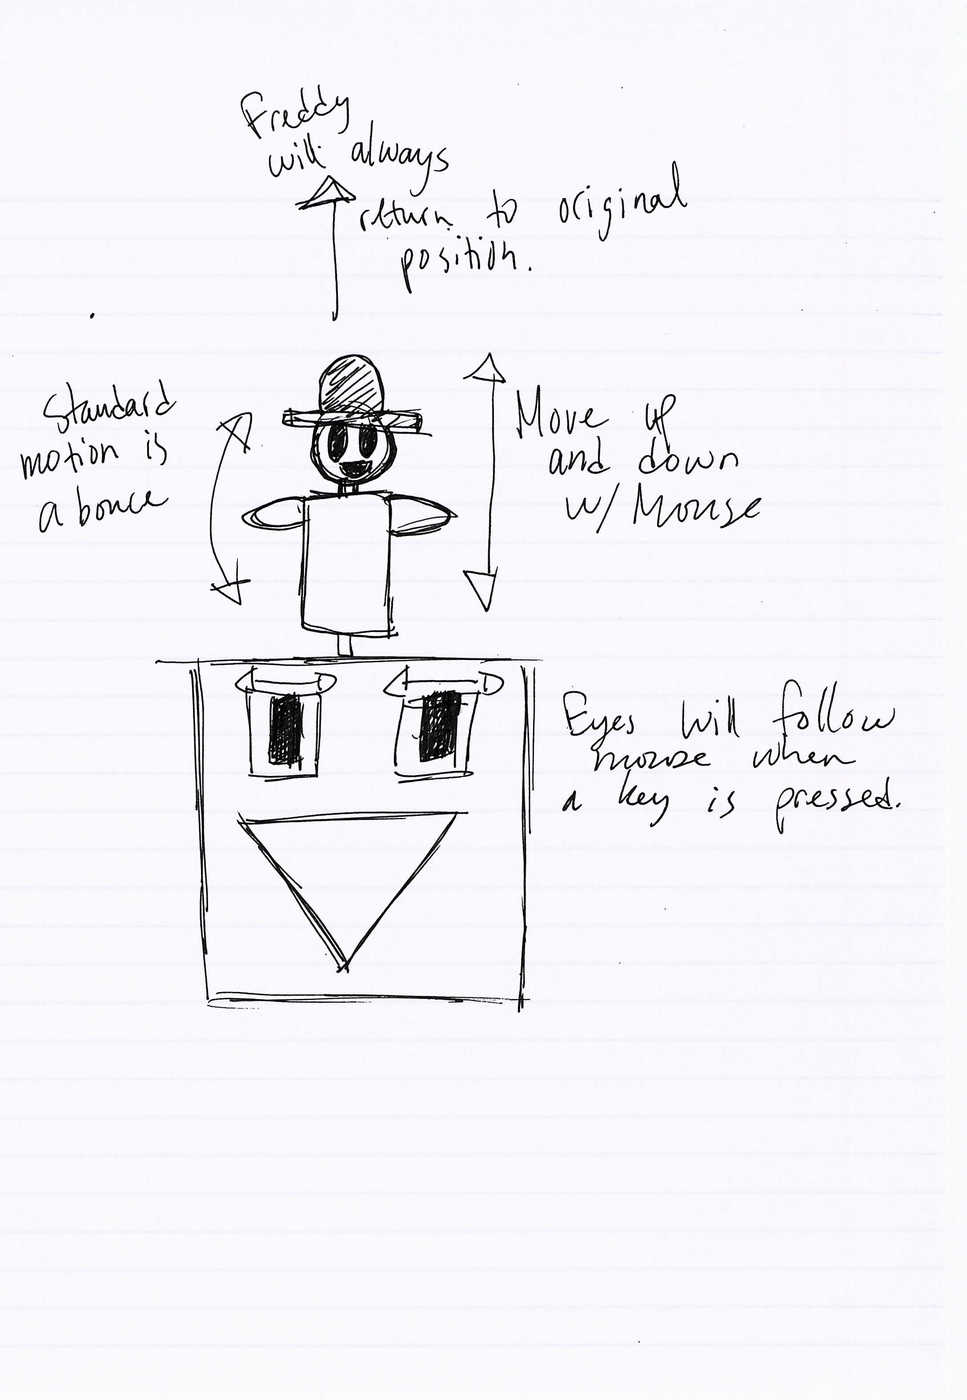 Freddy
will always
return to original
position.
Standard
motion is
a bounce
Move up
and down
w/ Mouse
Eyes will follow
mouse when
a key is pressed.